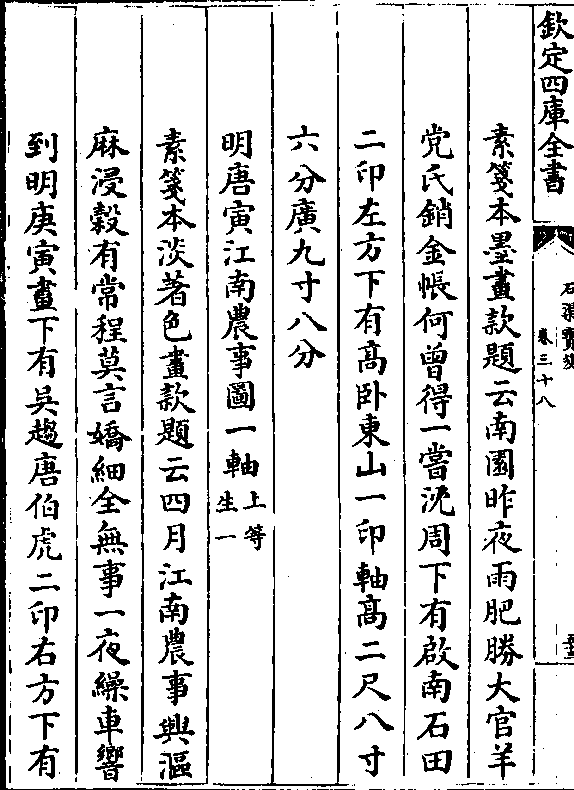 欽定四庫全書
石渠寶笈
卷三十八
素箋本墨畫款題云南園昨夜雨肥勝大官羊
党氏銷金帳何曾得一嘗沈周下有啟南石田
二印左方下有髙卧東山一印軸髙二尺八寸
六分廣九寸八分
明唐寅江南農事圖一軸上等生一
素箋本淡著色畫款題云四月江南農事興漚
麻浸穀有常程莫言嬌細全無事一夜繰車響
到明庚寅畫下有吳趨唐伯虎二印右方下有